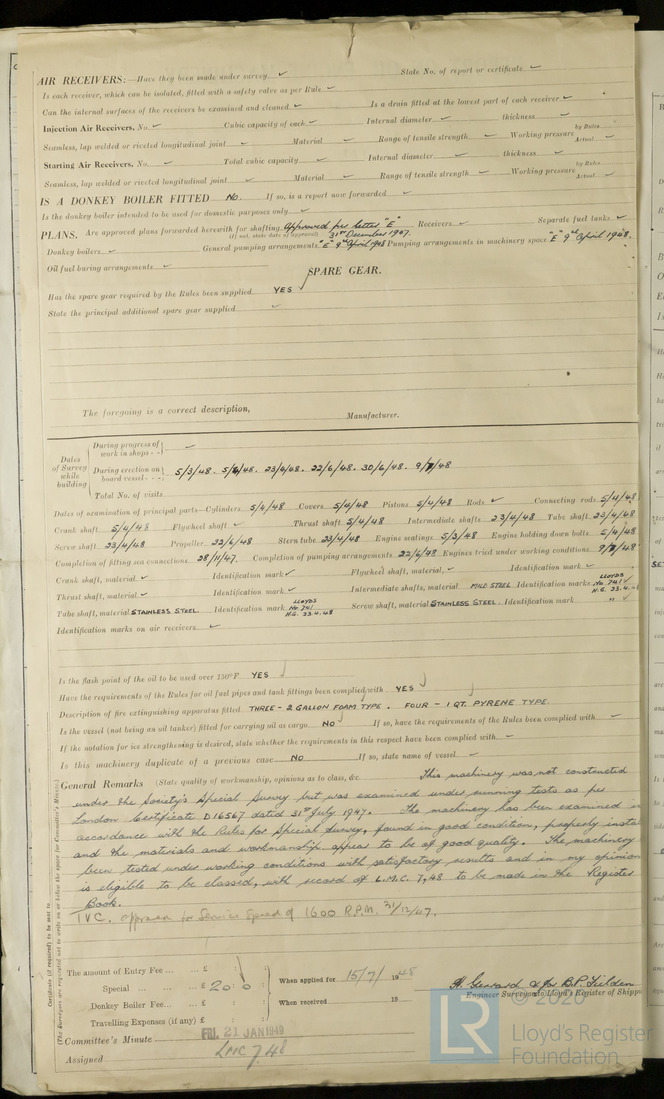 AIR RECEIVERS:—Have they been made under survey ✓ State No. of report or certificate ✓
Is each receiver, which can be isolated, fitted with a safety valve as per Rule ✓
Can the internal surfaces of the receivers be examined and cleaned ✓ Is a drain fitted at the lowest part of each receiver ✓
Injection Air Receivers, No. ✓ Cubic capacity of each ✓ Internal diameter ✓ thickness ✓
Seamless, lap welded or riveted longitudinal joint ✓ Material ✓ Range of tensile strength ✓ Working pressure by Rules Actual ✓
Starting Air Receivers, No. ✓ Total cubic capacity ✓ Internal diameter ✓ thickness ✓
Seamless, lap welded or riveted longitudinal joint ✓ Material ✓ Range of tensile strength ✓ Working pressure by Rules Actual ✓
IS A DONKEY BOILER FITTED No. If so, is a report now forwarded ✓
Is the donkey boiler intended to be used for domestic purposes only ✓
PLANS. Are approved plans forwarded herewith for shafting Approved per letter "E" Receivers ✓ Separate fuel tanks ✓
(If not, state date of approval) 31st December 1947.
Donkey boilers ✓ General pumping arrangements "E" 9th April 1948 Pumping arrangements in machinery space "E" 9th April 1948.
Oil fuel burning arrangements ✓
SPARE GEAR.
Has the spare gear required by the Rules been supplied YES
State the principal additional spare gear supplied ✓
The foregoing is a correct description,
Manufacturer.
Dates of Survey while building
During progress of work in shops - - ✓
During erection on board vessel - - - 5/3/48. 5/4/48. 23/4/48. 22/6/48. 30/6/48. 9/7/48
Total No. of visits
Dates of examination of principal parts—Cylinders 5/4/48 Covers 5/4/48 Pistons 5/4/48 Rods ✓ Connecting rods 5/4/48
Crank shaft 5/4/48 Flywheel shaft ✓ Thrust shaft 5/4/48 Intermediate shafts 23/4/48 Tube shaft 23/4/48
Screw shaft 23/4/48 Propeller 22/6/48 Stern tube 23/4/48 Engine seatings 5/3/48 Engine holding down bolts 5/4/48
Completion of fitting sea connections 28/11/47. Completion of pumping arrangements 22/6/48 Engines tried under working conditions 9/7/48
Crank shaft, material ✓ Identification mark ✓ Flywheel shaft, material, ✓ Identification mark ✓
Thrust shaft, material ✓ Identification mark ✓ Intermediate shafts, material MILD STEEL Identification marks LLOYDS No. 741 N.G. 23.4.48
Tube shaft, material STAINLESS STEEL. Identification mark LLOYDS No. 741 N.G. 23.4.48 Screw shaft, material STAINLESS STEEL. Identification mark " ✓
Identification marks on air receivers ✓
Is the flash point of the oil to be used over 150°F YES
Have the requirements of the Rules for oil fuel pipes and tank fittings been complied with YES
Description of fire extinguishing apparatus fitted THREE - 2 GALLON FOAM TYPE. FOUR - 1 QT. PYRENE TYPE.
Is the vessel (not being an oil tanker) fitted for carrying oil as cargo NO If so, have the requirements of the Rules been complied with ✓
If the notation for ice strengthening is desired, state whether the requirements in this respect have been complied with ✓
Is this machinery duplicate of a previous case NO If so, state name of vessel ✓
General Remarks (State quality of workmanship, opinions as to class, &c. This machinery was not constructed
under the Society's Special Survey but was examined under running tests as per
London Certificate D16567 dated 31st July 1947. The machinery has been examined in
accordance with the Rules for Special Survey, found in good condition, properly insta
and the materials and workmanship appear to be of good quality. The machinery
been tested under working conditions with satisfactory results and in my opinion
is eligible to be classed, with record of L.M.C. 7,48 to be made in the Register
Book.
TVC. approved for Service Speed of 1600 R.P.M. 31/12/47.
Certificate (if required) to be sent to
(The Surveyors are requested not to write on or below the space for Committee's Minute.)
The amount of Entry Fee ... £ : : When applied for 15/7/1948
Special ... £ 20 : 0
Donkey Boiler Fee ... £ : : When received 19
Travelling Expenses (if any) £ : :
H. Gerrard for B.P. Fielden
Engineer Surveyor to Lloyd's Register of Shipp
Committee's Minute FRI. 21 JAN 1949
Assigned LMC 7.48
LR
© 2020
Lloyd's Register
Foundation